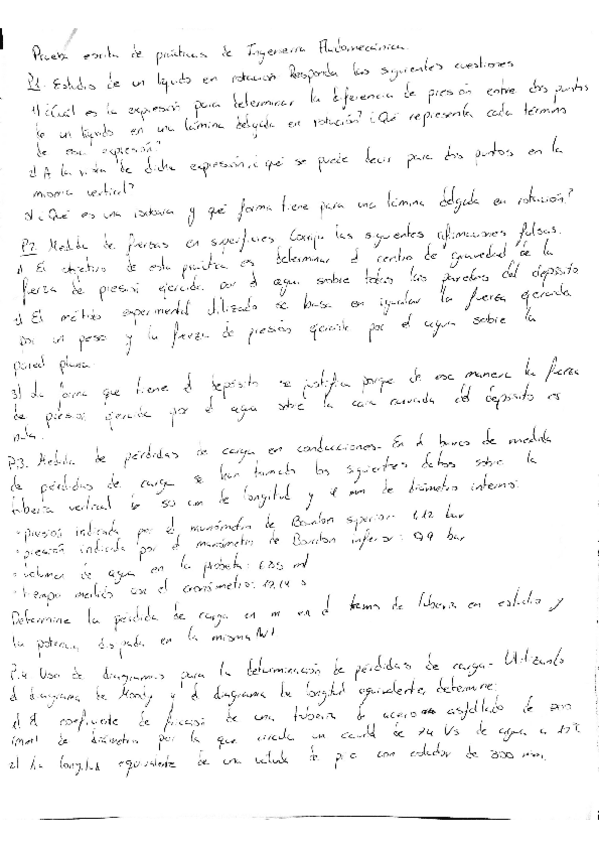 Prueba escrita de prácticas de Ingeniería Fluidomecánica.
P1. Estudio de un líquido en rotación. Responda las siguientes cuestiones
1) ¿Cuál es la expresión para determinar la diferencia de presión entre dos puntos
de un líquido en una lámina delgada en rotación? ¿Qué representa cada término
de esa expresión?
2) A la vista de dicha expresión, ¿qué se puede decir para dos puntos en la
misma vertical?
3) ¿Qué es una isobara y qué forma tiene para una lámina delgada en rotación?
P2. Medida de fuerzas en superficies. Corrija las siguientes afirmaciones falsas.
1) El objetivo de esta práctica es determinar el centro de gravedad de la
fuerza de presión ejercida por el agua sobre todas las paredes del depósito
2) El método experimental utilizado se basa en igualar la fuerza ejercida
por un peso y la fuerza de presión ejercida por el agua sobre la
pared plana.
3) La forma que tiene el depósito se justifica porque de esa manera la fuerza
de presión ejercida por el agua sobre la cara curvada del depósito es
nula.
P.3. Medida de pérdidas de carga en conducciones. En el banco de medida
de pérdidas de carga se han tomado los siguientes datos sobre la
tubería vertical de 50 cm de longitud y 4 mm de diámetro interno:
· presión indicada por el manómetro de Bourdon superior: 1,12 bar
· presión indicada por el manómetro de Bourdon inferior: 0,9 bar
· volumen de agua en la probeta: 635 ml
· tiempo medido con el cronómetro: 12,14 s
Determine la pérdida de carga en m en el tramo de tubería en estudio y
la potencia disipada en la misma
P.4. Uso de diagramas para la determinación de pérdidas de carga.- Utilizando
el diagrama de Moody y el diagrama de longitud equivalente, determine:
1) El coeficiente de fricción de una tubería de acero asfaltado de 200
de diámetro por la que circula un caudal de 24 l/s de agua a
2) La longitud equivalente de una válvula de pie con colador de 300 mm.